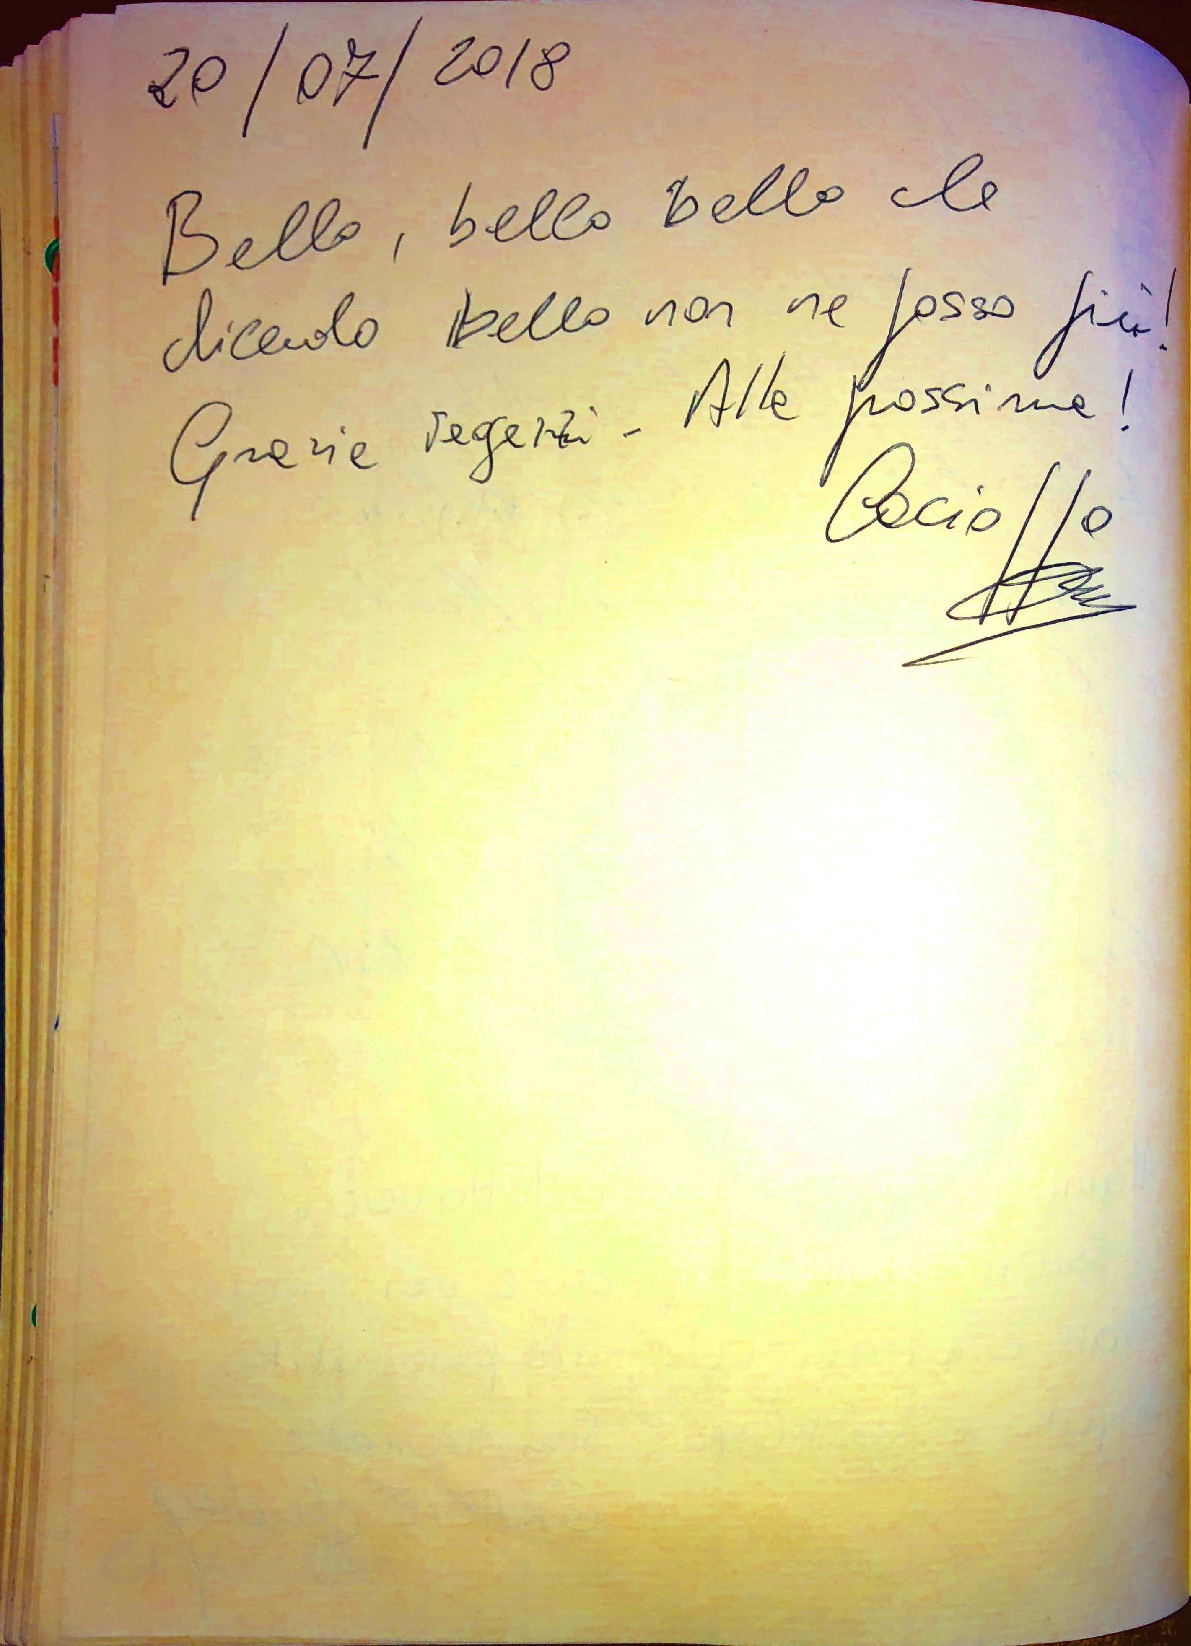 20/07/2018
Bello, bello bello che
dicendo bello non ne posso più!
Grazie ragazzi - Alla prossima!
Cacioffo